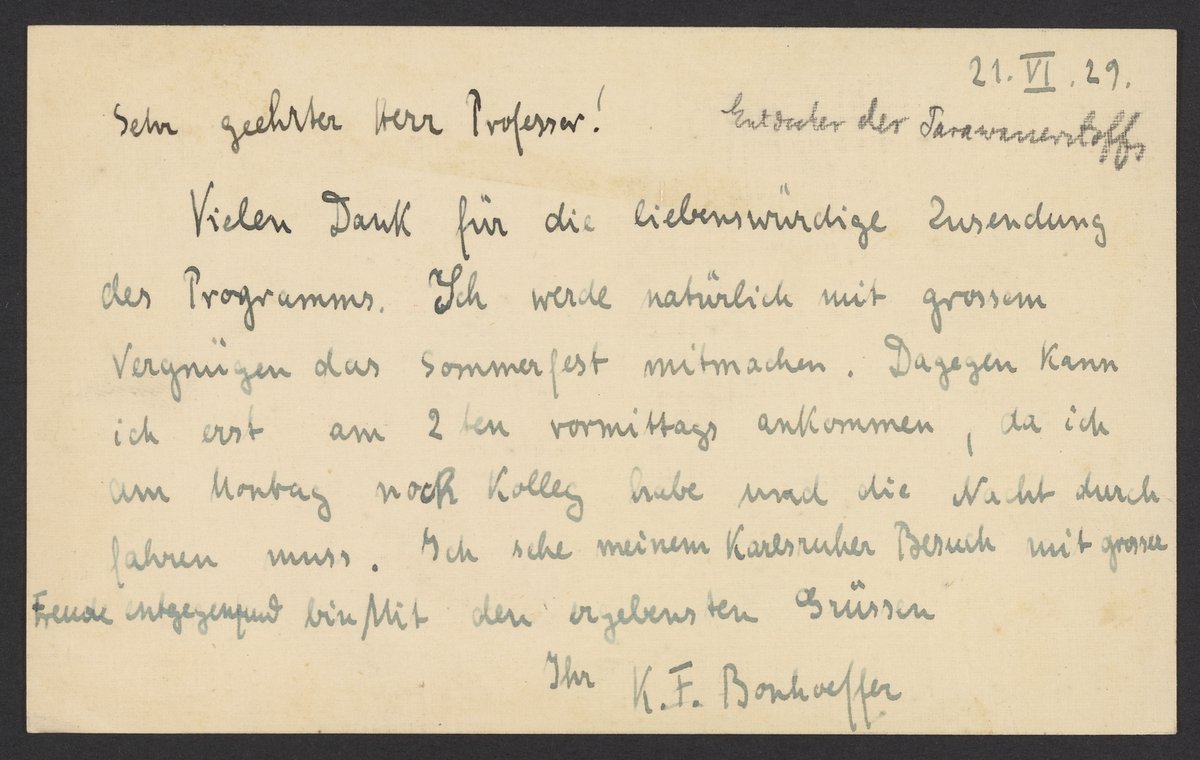 21. VI. 29.
Sehr geehrter Herr Professor!
Entdecker der Parawasserstoffs
Vielen Dank für die liebenswürdige Zusendung
des Programms. Ich werde natürlich mit grossem
Vergnügen das Sommerfest mitmachen. Dagegen kann
ich erst am 2ten vormittags ankommen, da ich
am Montag noch Kolleg habe und die Nacht durch
fahren muss. Ich sehe meinem Karlsruher Besuch mit grosser
Freude entgegen und bin Mit den ergebensten Grüssen
Ihr K. F. Bonhoeffer